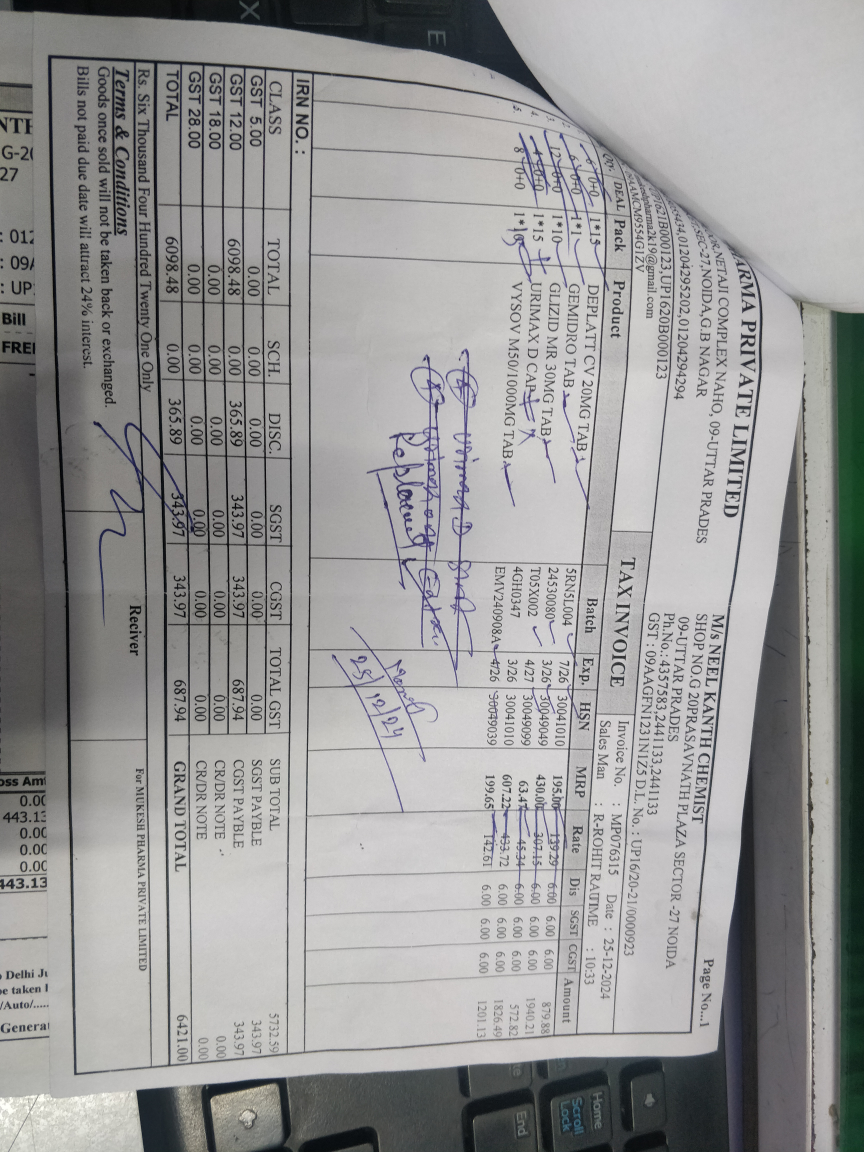 PHARMA PRIVATE LIMITED
NETAJI COMPLEX NAHO, 09-UTTAR PRADES
SEC-27,NOIDA,G.B NAGAR
01204295202,01204294294
UP1620B000123
pharma2k19@gmail.com
M/s NEEL KANTH CHEMIST
SHOP NO.G 20PRASAVNATH PLAZA SECTOR -27 NOIDA
09-UTTAR PRADES
Ph.No.:4357583,2441133,2441133
GST : 09AAGFN1231N1Z5 D.L. No. : UP16/20-21/0000923
Page No...1
TAX INVOICE
Invoice No. : MP076315 Date : 25-12-2024
Sales Man : R-ROHIT RAUTIME : 10:33
Qty. DEAL Pack Product Batch Exp. HSN MRP Rate Dis SGST CGST Amount
0+0 1*15 DEPLATT CV 20MG TAB 5RN5L004 7/26 30041010 195.00 139.29 6.00 6.00 6.00 879.88
6 0+0 1*1 GEMIDRO TAB 24530080 3/26 30049049 430.00 307.15 6.00 6.00 6.00 1940.21
3. 12 0+0 1*10 GLIZID MR 30MG TAB T05X002 4/27 30049099 63.47 45.34 6.00 6.00 6.00 572.82
4. 4 0+0 1*15 URIMAX D CAP 4GH0347 3/26 30041010 607.22 433.72 6.00 6.00 6.00 1826.49
5. 8 0+0 VYSOV M50/1000MG TAB EMV240908A 4/26 30049039 199.65 142.61 6.00 6.00 6.00 1201.13
Urimax D
Replaced
25/12/24
IRN NO. :
CLASS TOTAL SCH. DISC. SGST CGST TOTAL GST
GST 5.00 0.00 0.00 0.00 0.00 0.00 0.00
GST 12.00 6098.48 0.00 365.89 343.97 343.97 687.94
GST 18.00 0.00 0.00 0.00 0.00 0.00 0.00
GST 28.00 0.00 0.00 0.00 0.00 0.00 0.00
TOTAL 6098.48 0.00 365.89 343.97 343.97 687.94
SUB TOTAL 5732.59
SGST PAYBLE 343.97
CGST PAYBLE 343.97
CR/DR NOTE 0.00
CR/DR NOTE 0.00
GRAND TOTAL 6421.00
Rs. Six Thousand Four Hundred Twenty One Only
Terms & Conditions
Goods once sold will not be taken back or exchanged.
Bills not paid due date will attract 24% interest.
Reciver
For MUKESH PHARMA PRIVATE LIMITED
G-20
27
: 012
: 09A
: UP
Bill
FREE
0.00
443.13
0.00
0.00
0.00
443.13
Delhi
be taken
/Auto/.....
E
X
Home
Scroll
Lock
End